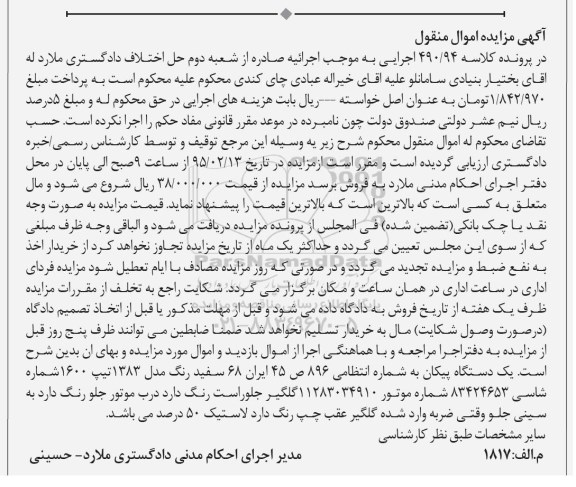 آگهی مزایده اموال منقول
در پرونده کلاسه ۴۹۰/۹۴ اجرایی به موجب اجرائیه صادره از شعبه دوم حل اختلاف دادگستری ملارد له
اقای بختیار بنیادی سامانلو علیه اقای خیراله عبادی چای کندی محکوم علیه محکوم است به پرداخت مبلغ
۱/۸۴۲/۹۷۰تومان به عنوان اصل خواسته ---ریال بابت هزینه های اجرایی در حق محکوم له و مبلغ ۵درصد
ریال نیم عشر دولتی صندوق دولت چون نامبرده در موعد مقرر قانونی مفاد حکم را اجرا نکرده است. حسب
تقاضای محکوم له اموال منقول محکوم شرح زیر به وسیله این مرجع توقیف و توسط کارشناس رسمی/خبره
دادگستری ارزیابی گردیده است و مقرر است ازمزایده در تاریخ ۹۵/۰۲/۱۳ از ساعت ۹صبح الی پایان در محل
دفتر اجرای احکام مدنی ملارد به فروش برسد مزایده از قیمت ۳۸/۰۰۰/۰۰۰ ریال شروع می شود و مال
متعلق به کسی است که بالاترین است که بالاترین قیمت را پیشنهاد نماید. قیمت مزایده به صورت وجه
نقد یا چک بانکی(تضمین شده) فی المجلس از پرونده مزایده دریافت می شود و الباقی وجه ظرف مبلغی
که از سوی این مجلس تعیین می گردد و حداکثر یک ماه از تاریخ مزایده تجاوز نخواهد کرد از خریدار اخذ
به نفع ضبط و مزایده تجدید می گردد و در صورتی که روز مزایده مصادف با ایام تعطیل شود مزایده فردای
اداری در ساعت اداری در همان ساعت و مکان برگزار می گردد. شکایت راجع به تخلف از مقررات مزایده
ظرف یک هفته از تاریخ فروش به دادگاه داده می شود و قبل از مهلت مذکور یا قبل از اتخاذ تصمیم دادگاه
(درصورت وصول شکایت) مال به خریدار تسلیم نخواهد شد ضمنا ضابطین می توانند ظرف پنج روز قبل
از مزایده به دفتراجرا مراجعه و با هماهنگی اجرا از اموال بازدید و اموال مورد مزایده و بهای ان بدین شرح
است. یک دستگاه پیکان به شماره انتظامی ۸۹۶ ص ۴۵ ایران ۶۸ سفید رنگ مدل ۱۳۸۳تیپ ۱۶۰۰شماره
شاسی ۸۳۴۲۴۶۵۳ شماره موتور ۱۱۲۸۳۰۳۴۹۱۰گلگیر جلوراست رنگ دارد درب موتور جلو رنگ دارد به
سینی جلو وقتی ضربه وارد شده گلگیر عقب چپ رنگ دارد لاستیک ۵۰ درصد می باشد.
سایر مشخصات طبق نظر کارشناسی
م.الف:۱۸۱۷ مدیر اجرای احکام مدنی دادگستری ملارد- حسینی
ParsNamadData
۰۲۱-۸۸۳۴۹۶۷۰-۵